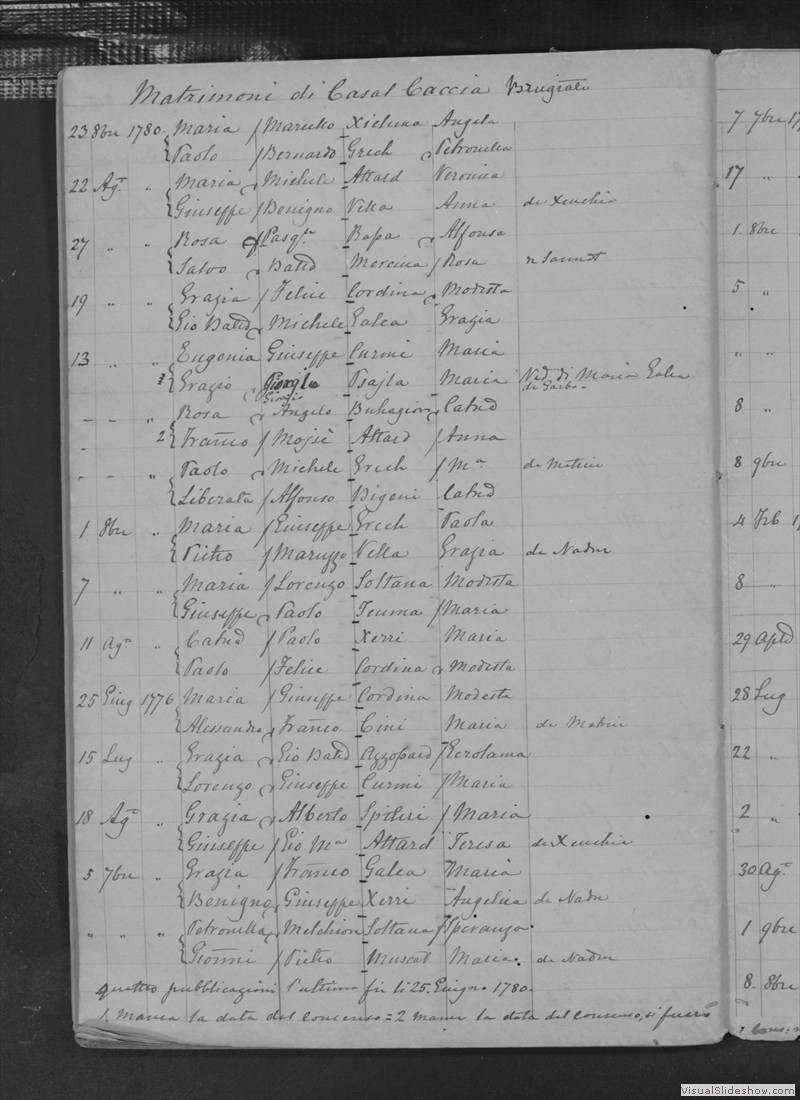 Matrimoni di Casal Caccia
23 8bre 1780. Maria / Xicluna Angela
Paolo / Bernardo Grech Petronilla
22 Agº " Maria Michele Attard Veronica
Giuseppe / Benigno Vella Anna de Xeuchia
27 " " Rosa Rapa Alfonsa
Salvo Battª Mercieca / Rosa
19 " " Grazia / Felice Cordina Modesta
Gio Battª Michele Galea Grazia
13 " " Eugenia Giuseppe Curmi Maria
Grazio Psajla Maria Ved. di Maria Galea
Giorgio de Garbo
- - " Rosa Angelo Buhagiar Catnª
- 2 Franco / Attard / Anna
- - " Paolo Michele Grech / Mª
Liberata / Alfonso Bigeni Catnª
1 8bre " Maria / Giuseppe Grech Paola
Pietro / Maruzzo Vella Grazia de Nadur
7 " " Maria / Lorenzo Soltana Modesta
Giuseppe Paolo Teuma / Maria
11 Agº " Catnª / Paolo Xerri Maria
Paolo / Felice Cordina Modesta
25 Giug 1776 Maria / Giuseppe Cordina Modesta
Alessandro Franco Cini Maria
15 Lug " Grazia Gio Battª Azzopard / Gerolama
Lorenzo Giuseppe Curmi / Maria
18 Agº " Grazia Alberto Spiteri / Maria
Giuseppe / Gio Mª Attard Teresa de Xeuchia
5 7bre " Grazia / Franco Galea Maria
Benigno Giuseppe Xerri Angelica de Nadur
" " " Petronilla Melchion Soltana / Speranza
Gionni / Pietro Muscat Maria. de Nadur
quattro pubblicazioni l'ultima fu li 25. Giugno 1780.
1. Manca la data del consenso = 2 manca la data del consenso, si
7 7bre 17
17 "
1 8bre
5 "
" "
8 "
8 9bre
4 Feb 1
8 "
29 Aple
28 Lug
22 "
2 "
30 Agº
1 9bre
8 8bre
VisualSlideshow.com